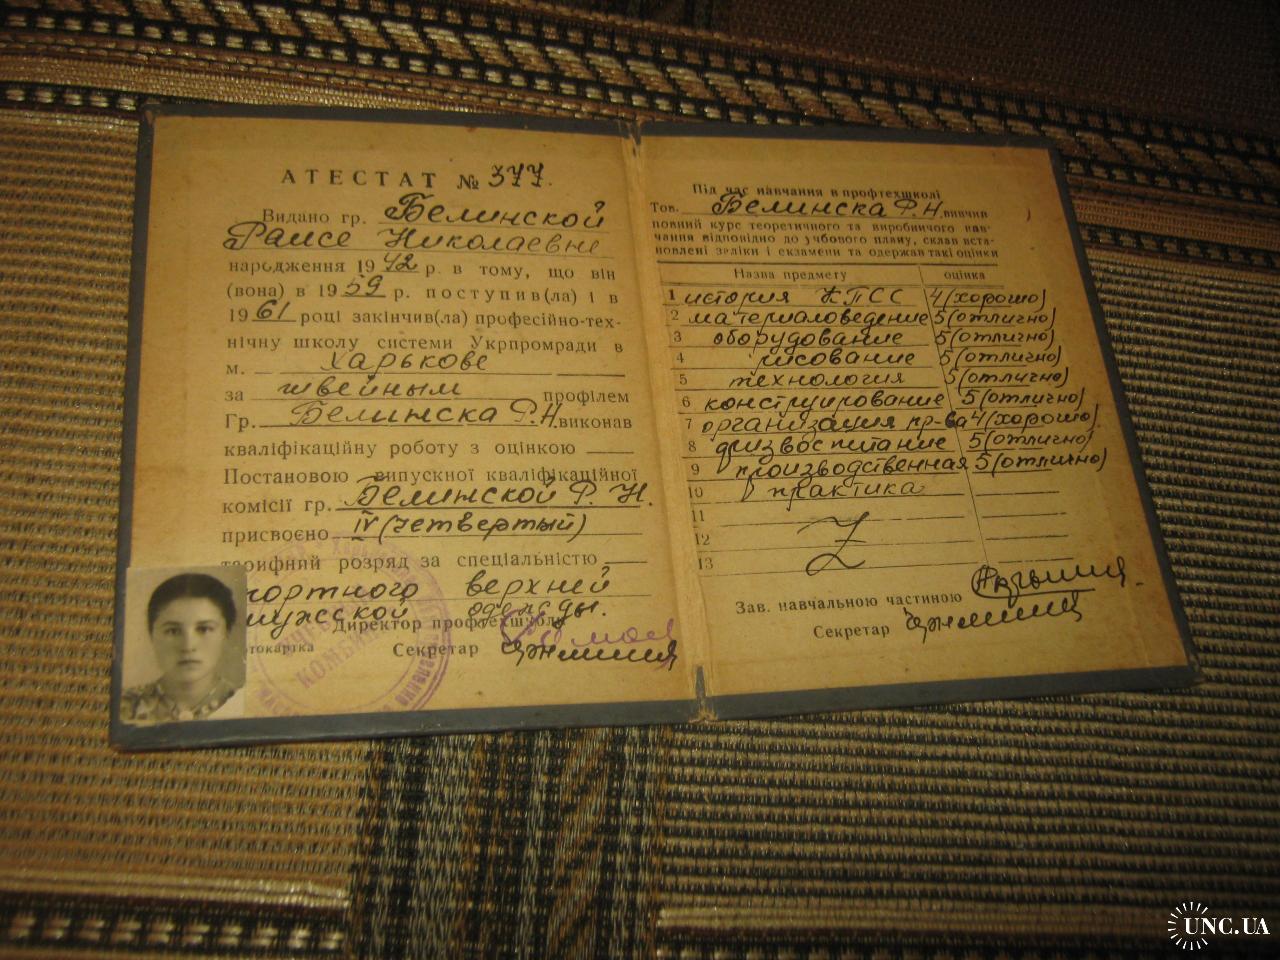 АТЕСТАТ № 377.
Видано гр. Белинской
Раисе Николаевне
народження 1942 р. в тому, що він
(вона) в 1959 р. поступив(ла) і в
1961 році закінчив(ла) професійно-тех-
нічну школу системи Укрпромради в
м. Харькове
за швейным профілем
Гр. Белинска Р.Н. виконав
кваліфікаційну роботу з оцінкою
Постановою випускної кваліфікаційної
комісії гр. Белинской Р. Н.
присвоєно IV (четвертый)
тарифний розряд за спеціальністю
портного верхней
мужской одежды.
Директор профтехшколи
Фотокартка Секретар
КОМБІНАТ
Під час навчання в профтехшколі
Тов. Белинска Р. Н. вивчив
повний курс теоретичного та виробничого нав-
чання відповідно до учбового плану, склав вста-
новлені заліки і екзамени та одержав такі оцінки
Назва предмету оцінка
1 история КПСС 4 (хорошо)
2 материаловедение 5 (отлично)
3 оборудование 5 (отлично)
4 рисование 5 (отлично)
5 технология 5 (отлично)
6 конструирование 5 (отлично)
7 организация пр-ва 4 (хорошо)
8 физвоспитание 5 (отлично)
9 производственная 5 (отлично)
10 практика
11
12
13
Зав. навчальною частиною
Секретар
UNC.UA